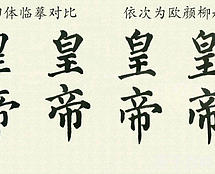 体临摹对比 依次为欧颜柳
皇 皇 皇 皇
帝 帝 帝 帝